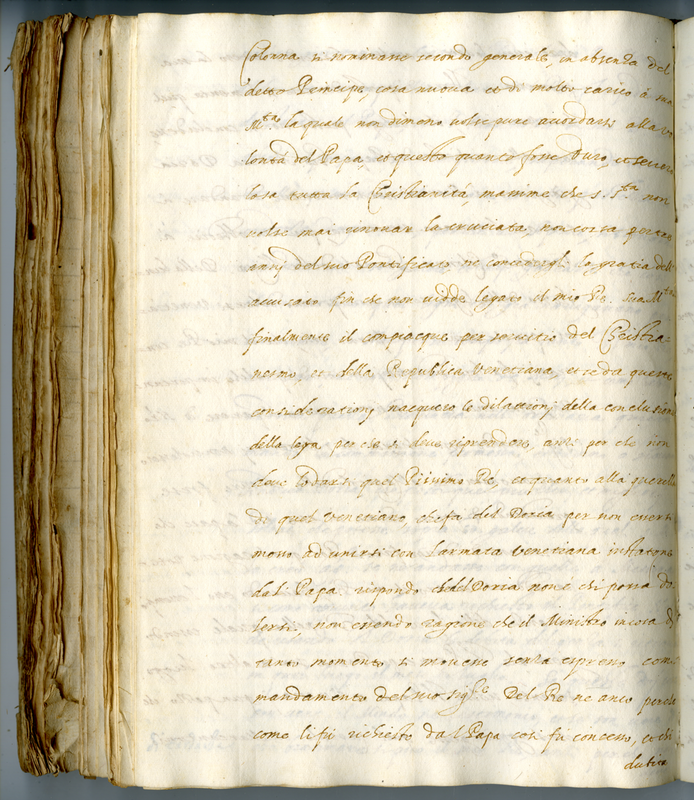 Colonna si nominasse secondo generale, in absenza del
detto Principe, cosa nuova et di molto carico à sua
M.ta la quale non dimeno volse pure accordarsi alla vo
lontà del Papa, et questo quanto fosse duro, et
lo sa tutta la Cristianità massime che S. S.ta non
volse mai rinovar la cruciata, non corsa per tre
anni del suo Pontificato ne concedergli la gratia dell'
accusato fin che non vidde legato il mio Re. Sua M.tà
finalmente il compiacque per servitio del Cristia-
nesmo, et della Republica Venetiana, et se da queste
considerationi nacquero le dilationi della conclusione
della lega perche si deve riprendere, anzi per che non
deve lodarsi quel Piissimo Re, et quanto alla querella
di quel Venetiano, che fa del Doria per non essersi
mosso ad unirsi con l'armata Venetiana instatone
dal Papa rispondo che del Doria non è chi possa do
lersi, non essendo ragione che il Ministro in cosa di
tanto momento si movesse senza espresso com
mandamento del suo sig.re Del Re ne anco perche
come li fu richiesto dal Papa cosi fu concesso, et chi
dubita